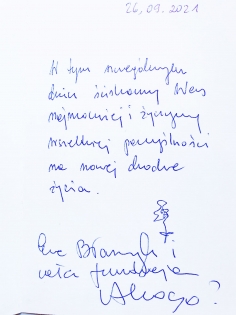 26,09.2021
W tym szczególnym
dniu ściskamy Was
najmocniej i życzymy
wszelkiej pomyślności
na nowej drodze
życia.
Ewa i
cała fundacja